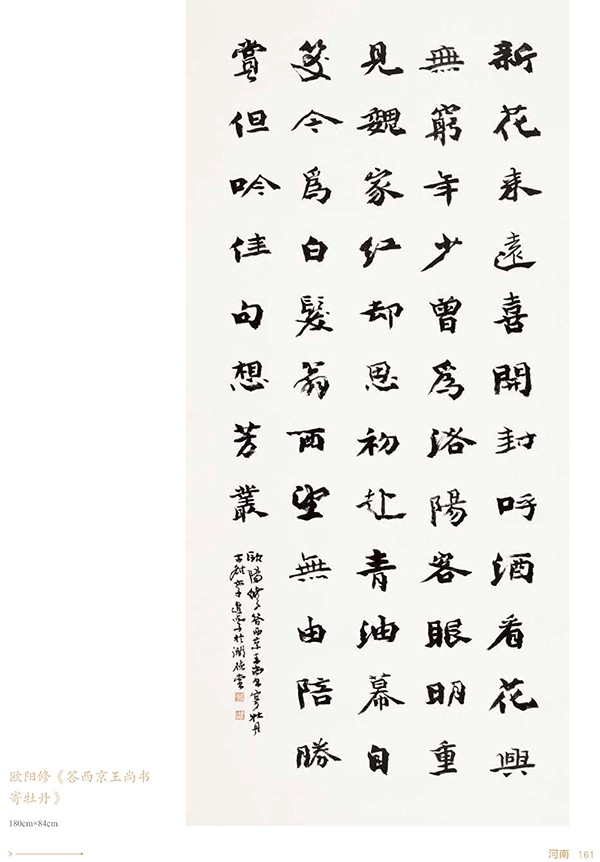 新花来遠喜開封呼酒看花興
無窮年少曾爲洛陽客眼明重
見魏家紅却思初赴青油幕自
笑今爲白髮翁西望無由陪勝
賞但吟佳句想芳叢
歐陽修答西京王尚書寄牡丹
欧阳修《答西京王尚书
寄牡丹》
180cm×84cm
河南 161